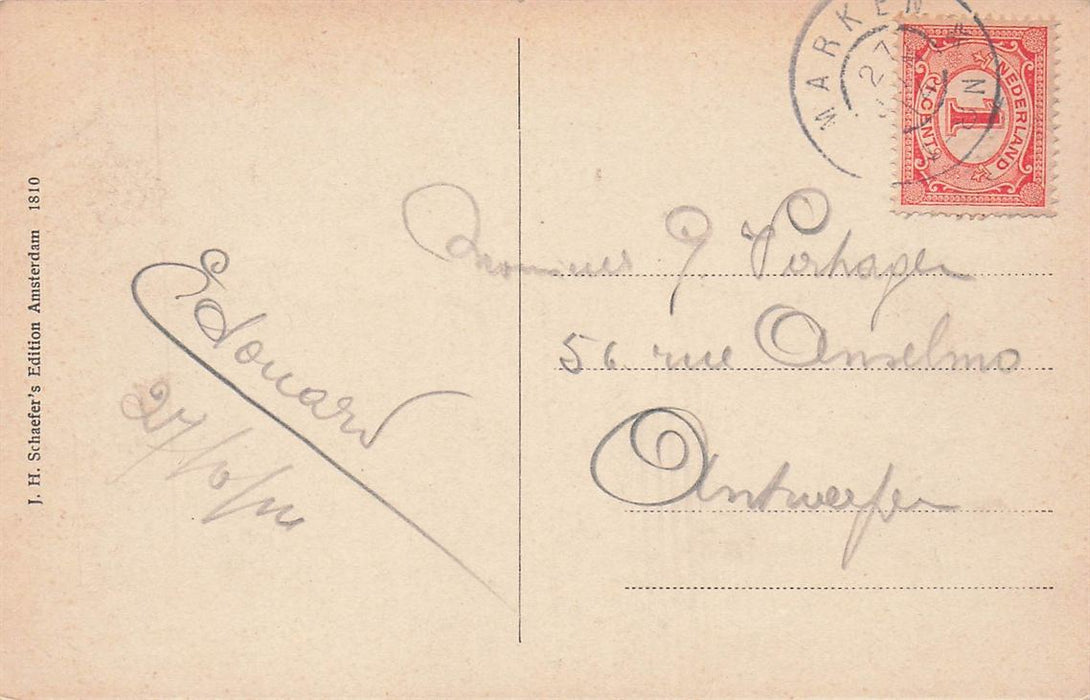 J. H. Schaefer's Edition Amsterdam 1810
Edouard
27/10/
MARKEN
27
NEDERLAND
1
CENT
Monsieur J. Verhagen
56 rue Anselmo
Antwerpen